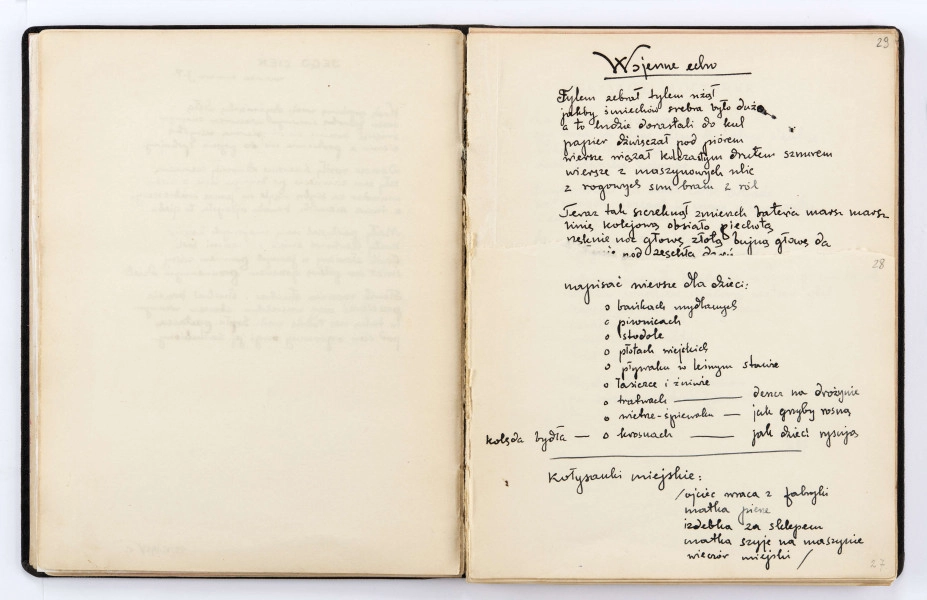 29
Wojenne echo
Tyłem zebrał tyłem
jakby śmiechów srebra było dużo
a to ludzie dorastali do kul
papier dźwięczał pod piórem
wiersze wiązał kolczastym drutem sznurem
wiersze z maszynowych ulic
z rogowych bram z ról
Teraz tak szczeknął zmierzch bateria marsz marsz
linię kolejową obsiało piechotą
głowę złotą bujną głowę da
pod zeschłą
28
napisać wiersze dla dzieci:
o bańkach mydlanych
o piwnicach
o stodole
o płotach wiejskich
o pływaku w leśnym stawie
o łasiczce i żniwie
o tratwach — deszcz na drożynie
o — jak grzyby rosną
kolęda bydła — o krosnach — jak dzieci rysują
Kołysanki miejskie:
/ojciec wraca z fabryki
matka pierze
izdebka za sklepem
matka szyje na maszynie
wieczór miejski /
27